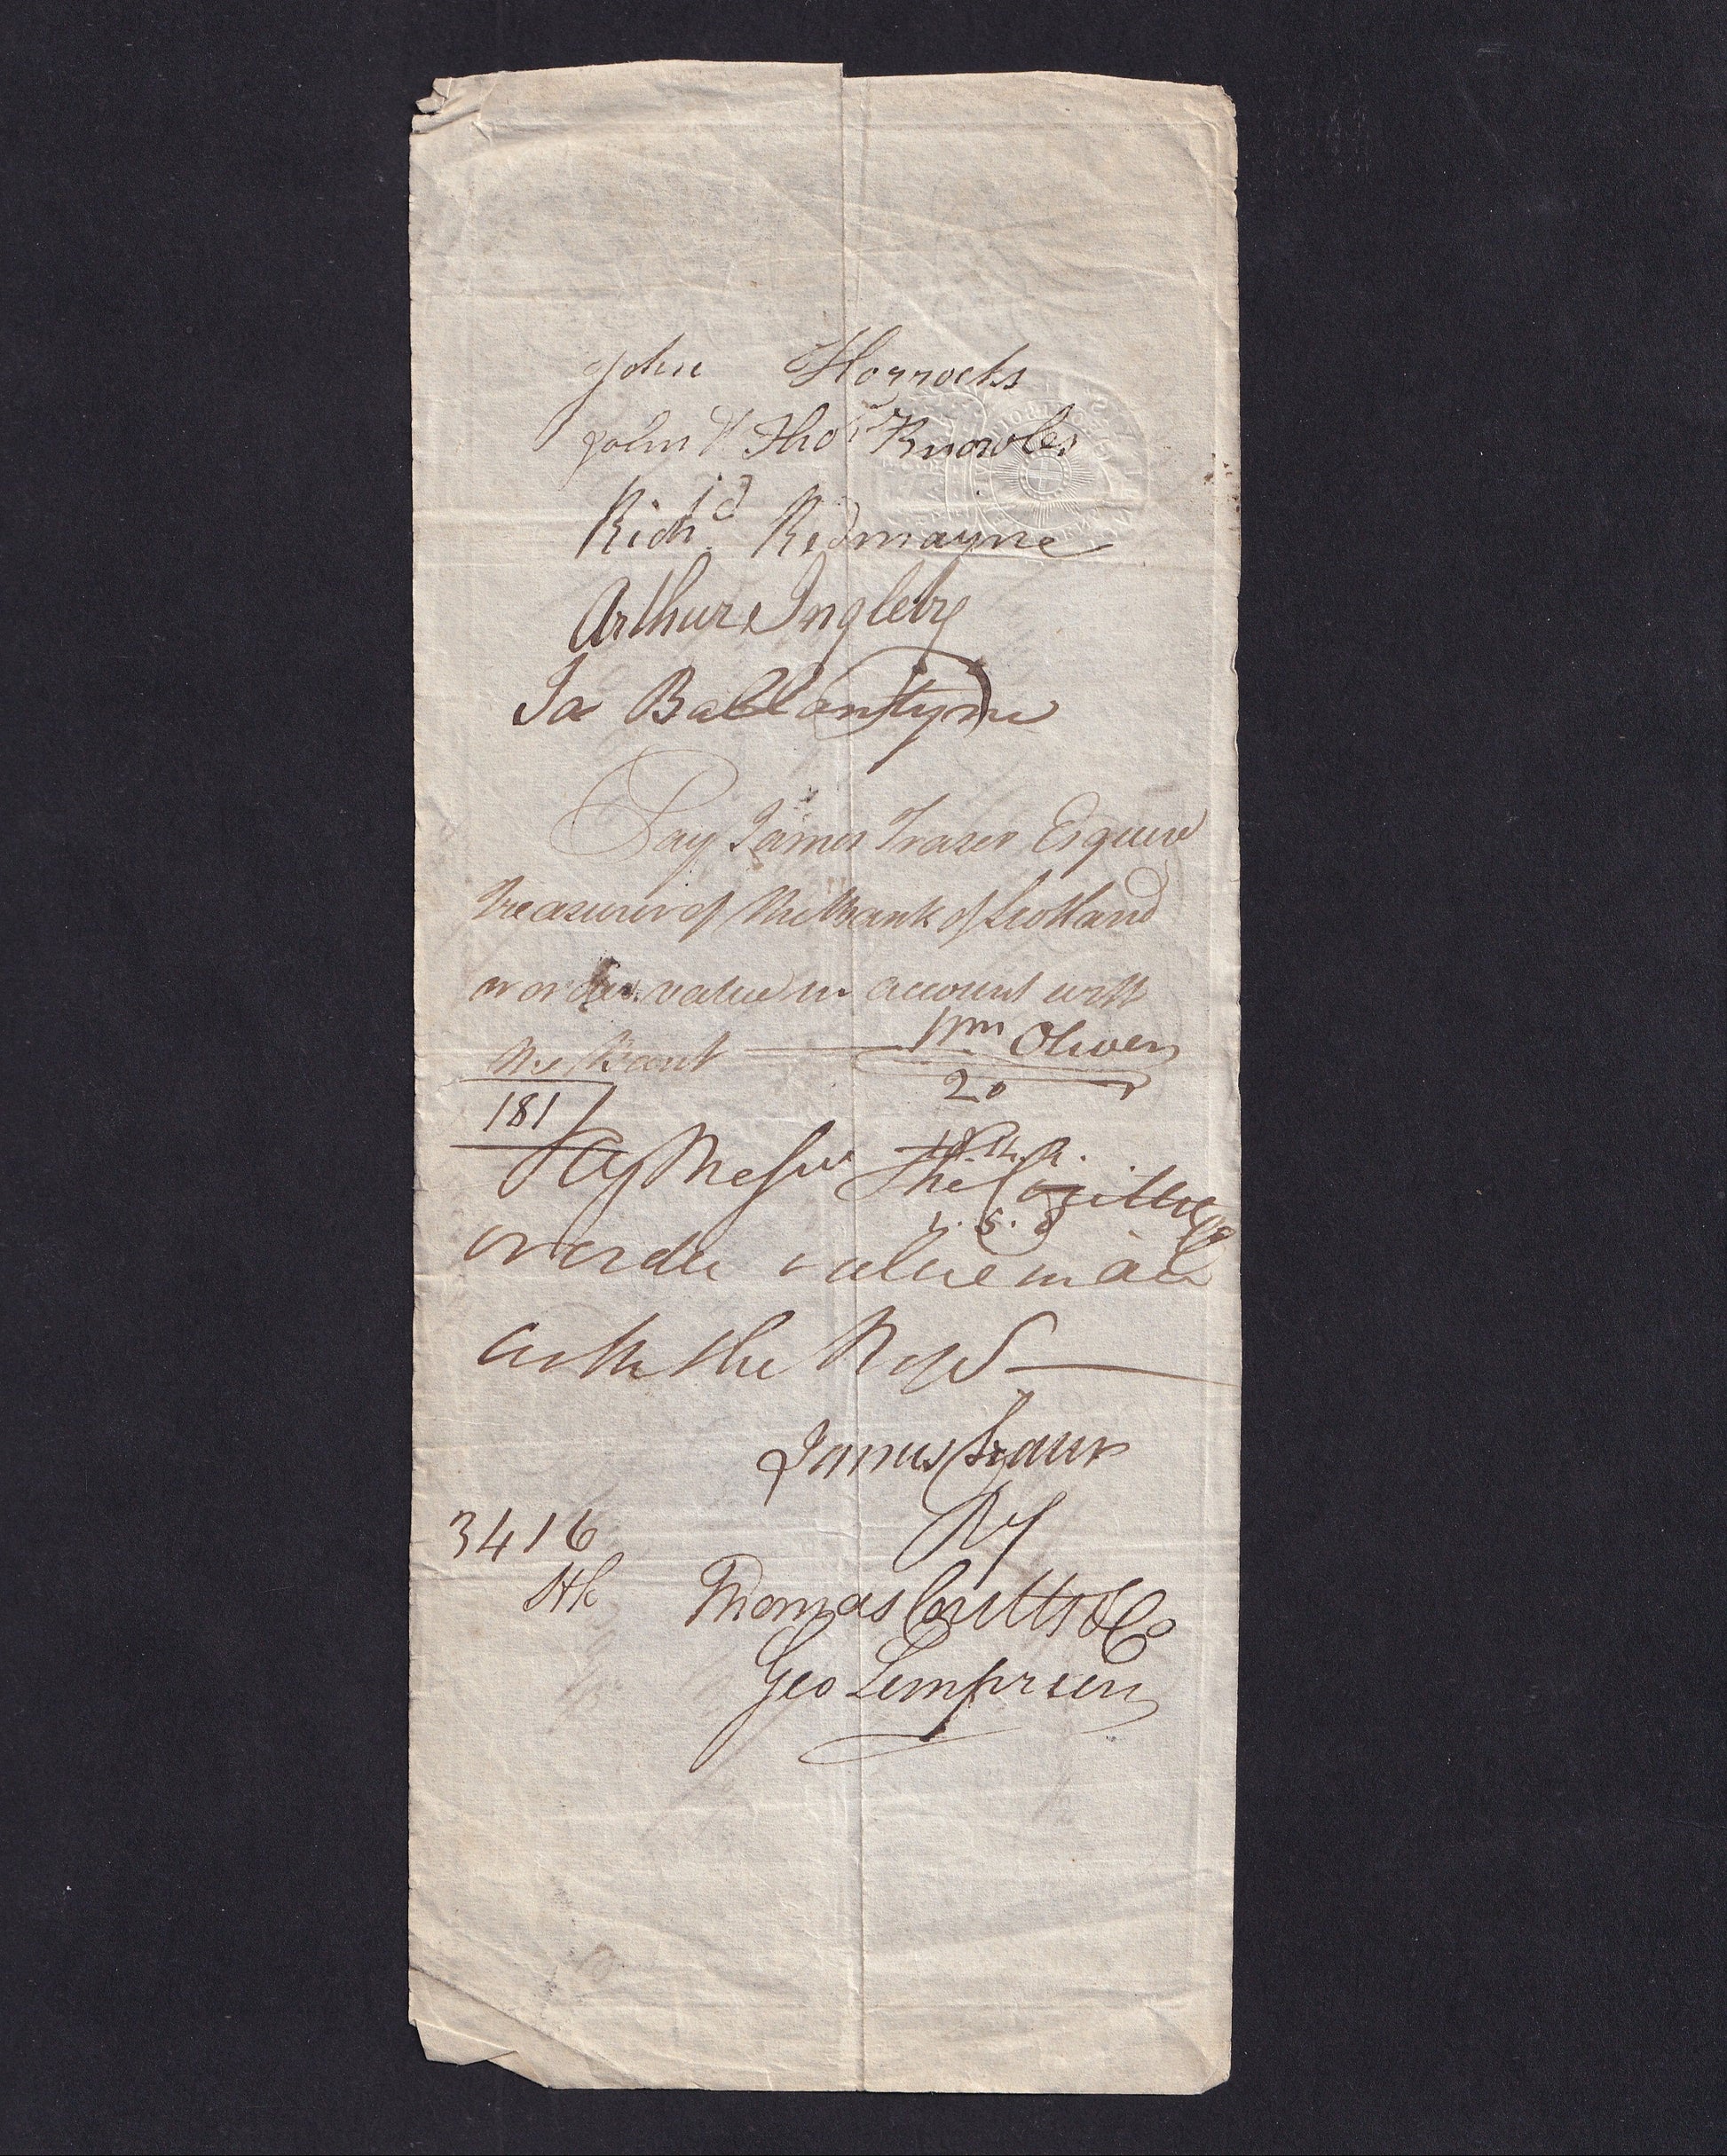 John Horrocks
John & Thos Knowles
Richd Redmayne
Arthur Ingleby
Ja Ballantyne
Pay James Fraser Esquire
Treasurer of the Bank of Scotland
or order value in account with
the Bank Wm Oliver
181 20
Pay Messrs Tho Coutts & Co
4. 5. 8
or order value in acct
with the Roy
James Fraser
3416
Thomas Coutts & Co
Geo Lempriere